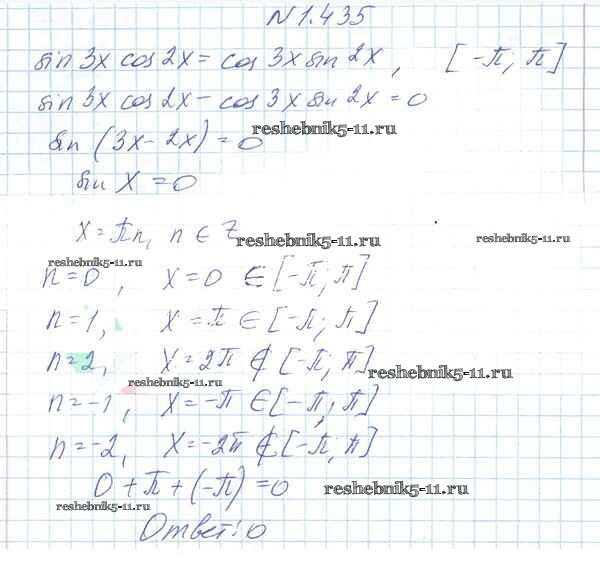 N 1.435
sin 3x cos 2x = cos 3x sin 2x, [-π; π]
sin 3x cos 2x - cos 3x sin 2x = 0
reshebnik5-11.ru
sin (3x - 2x) = 0
sin x = 0
x = πn, n ∈ Z
reshebnik5-11.ru
reshebnik5-11.ru
reshebnik5-11.ru
n = 0, x = 0 ∈ [-π; π]
n = 1, x = π ∈ [-π; π]
n = 2, x = 2π ∉ [-π; π]
reshebnik5-11.ru
reshebnik5-11.ru
n = -1, x = -π ∈ [-π; π]
n = -2, x = -2π ∉ [-π; π]
0 + π + (-π) = 0
reshebnik5-11.ru
reshebnik5-11.ru
Ответ: 0